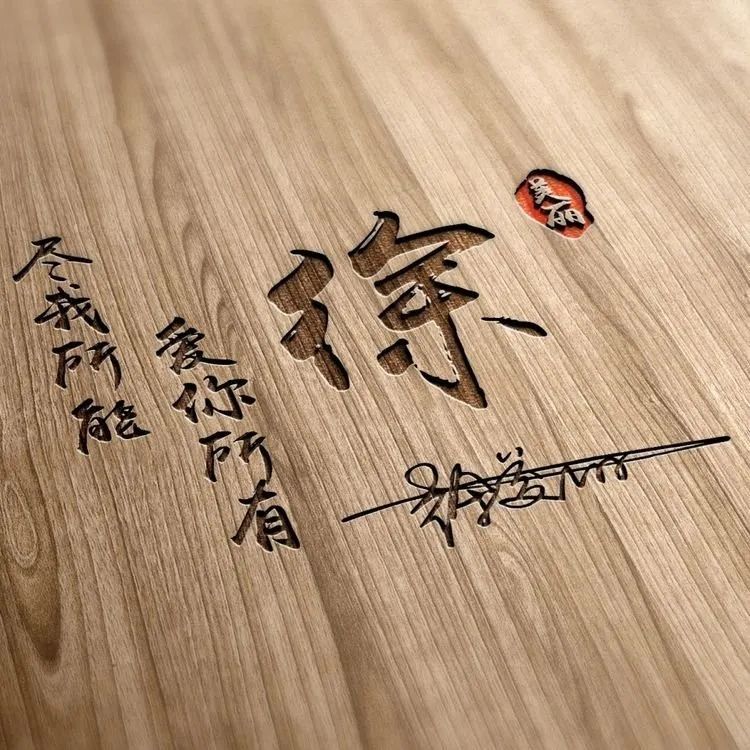 尽我所能
爱你所有
徐
美丽